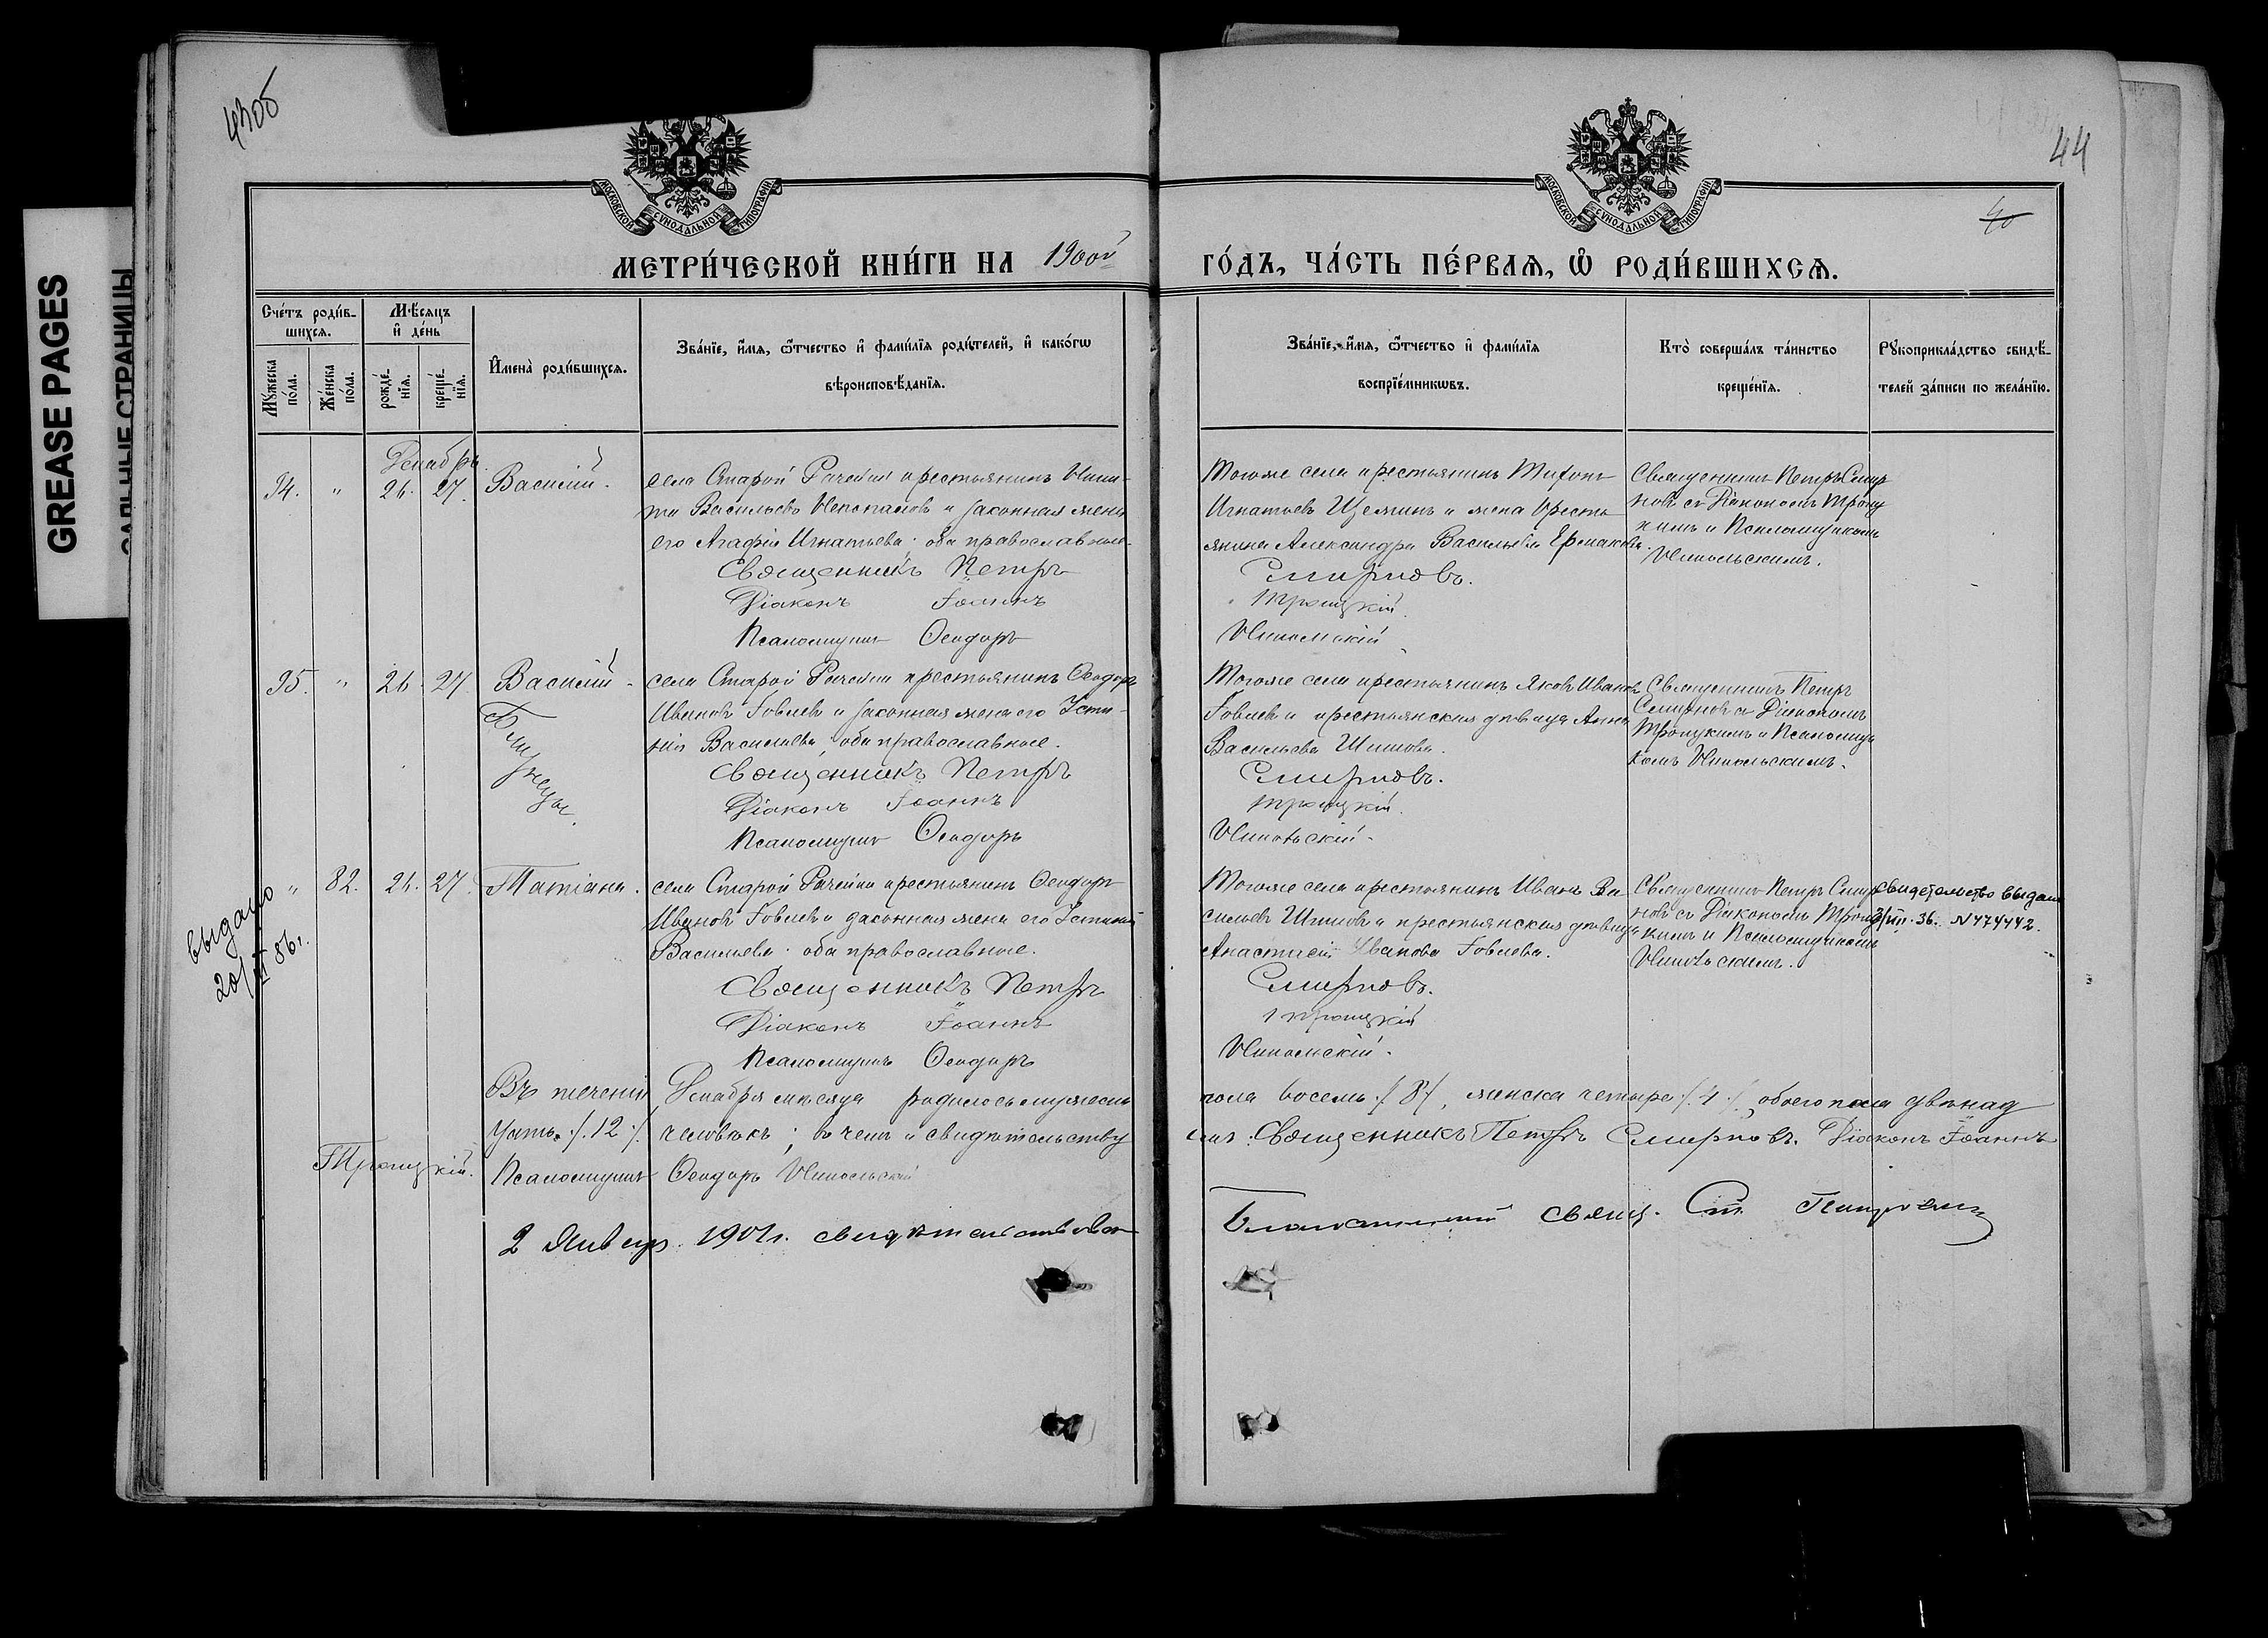 GREASE PAGES
САЛЬНЫЕ СТРАНИЦЫ
43об
44
40
МОСКОВСКОЙ СѴНОДАЛЬНОЙ ТИПОГРАФІИ
МОСКОВСКОЙ СѴНОДАЛЬНОЙ ТИПОГРАФІИ
МЕТРИ́ЧЕСКОЙ КНИ́ГИ НА 1900й
ГО́ДЪ, ЧА́СТЬ ПЕ́РВАѦ, Ѡ РОДИ́ВШИХСѦ.
Сче́тъ роди́в-
шихсѧ.
Мѣ́сѧцъ
и де́нь
Мꙋ́жеска
по́ла.
Же́нска
по́ла.
рожде́-
нїѧ.
креще́-
нїѧ.
И̓мена̀ роди́вшихсѧ.
Зва́нїе, и́мѧ, ѻ́тчество и фами́лїѧ роди́телей, и како́гѡ
вѣроисповѣ́данїѧ.
Зва́нїе, и́мѧ, ѻ́тчество и фами́лїѧ
воспрїе́мникѡвъ.
Кто̀ соверша́лъ та́инство
креще́нїѧ.
Рꙋкоприкла́дство свидѣ́-
телей за́писи по жела́нїю.
Декабрь.
94. " 26. 27. Василій.
села Старой Рачейки крестьянинъ Ники-
та Васильевъ и законная жена
его Агафія Игнатьева; оба православные.
Священникъ Петръ
Діаконъ Іоаннъ
Псаломщикъ Ѳеодоръ
Тогоже села крестьянинъ Тихонъ
Игнатьевъ и жена кресть-
янина Александра Васильева Ермакова.
Смирновъ.
Троицкій.
Никольскій
Священникъ Петръ Смир-
новъ съ Діакономъ Троиц-
кимъ и Псаломщикомъ
Никольскимъ.
95. " 26. 27. Василій.
Близнецы.
села Старой Рачейки крестьянинъ Ѳеодоръ
Ивановъ Говлевъ и законная жена его Усти-
нія Васильева, оба православные.
Священникъ Петръ
Діаконъ Іоаннъ
Псаломщикъ Ѳеодоръ
Тогоже села крестьянинъ Яковъ Ивановъ
Говлевъ и крестьянская дѣвица Анна
Васильева Шишова.
Смирновъ.
Троицкій.
Никольскій.
Священникъ Петръ
Смирновъ съ Діакономъ
Троицкимъ и Псаломщи-
комъ Никольскимъ.
выдано
20/III 86г.
" 82. 26. 27. Татіана.
села Старой Рачейки крестьянинъ Ѳеодоръ
Ивановъ Говлевъ и законная жена его Устинія
Васильева; оба православные.
Священникъ Петръ
Діаконъ Іоаннъ
Псаломщикъ Ѳеодоръ
Тогоже села крестьянинъ Иванъ Ва-
сильевъ Шишовъ и крестьянская дѣвица
Анастасія Иванова Говлева.
Смирновъ.
Троицкій
Никольскій.
Священникъ Петръ Смир-
новъ съ Діакономъ Троиц-
кимъ и Псаломщикомъ
Никольскимъ.
Свидетельство выдано
36. N 474442.
Въ теченіи Декабря мѣсяца родилось мужеска
пола восемь /8/, женска четыре /4/, обоего пола двѣнад
цать /.12./ человѣкъ; въ чемъ и свидѣтельству
емъ: Священникъ Петръ Смирновъ. Діаконъ Іоаннъ
Троицкій. Псаломщикъ Ѳеодоръ Никольскій
2 Января 1901г. свидѣтельствовалъ
Благочинный свящ. Ст.